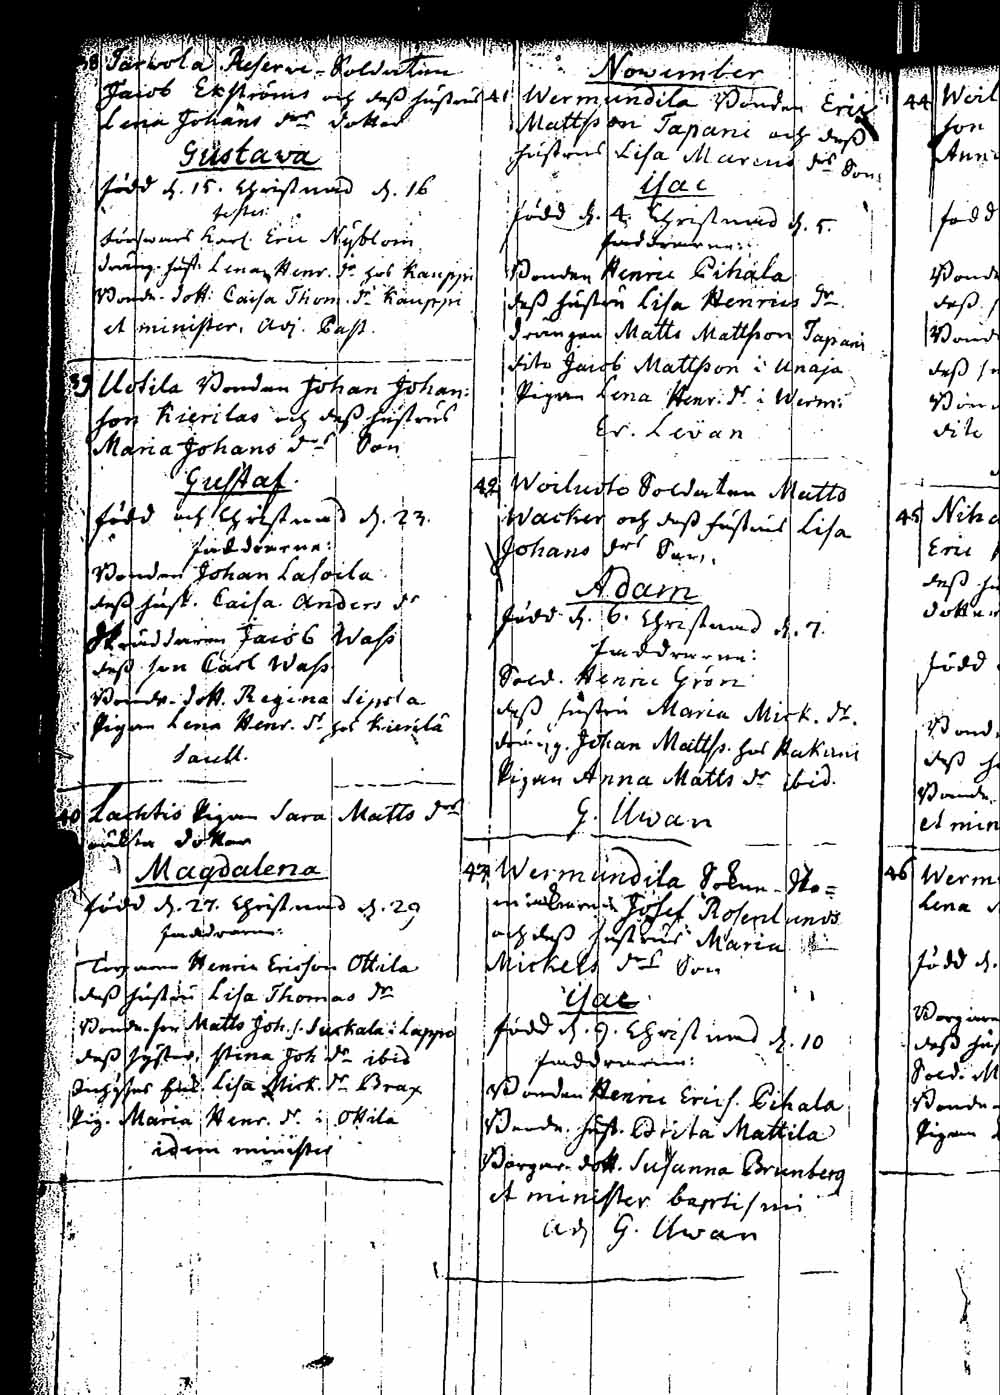 38 Järvola Reserve-Soldaten
Jacob Ekströms och dess hustrus
Lena Johans dr dotter
Gustava
född d. 15. Christnad d. 16
testes:
Karl Eric Nyblom
dräng. hust. Lena Henr. dr hos Kauppi
Bonde-dott. Caisa Thom. dr Kauppi
et minister, Adj. Past.
39 Uotila Bonden Johan Johan-
son Kierilas och dess hustrus
Maria Johans drs Son
Gustaf.
född och Christnad d. 23.
faddrarne:
Bonden Johan Lasoila
dess hust. Caisa Anders dr
Skräddaren Jacob Wass
dess son Carl Wass
Bonde-dott. Regina Sipola
Pigan Lena Henr. dr hos Kierilä
40 Lachtis Pigan Sara Matts drs
oäkta dotter
Magdalena
född d. 27. Christnad d. 29
faddrarne:
Henric Ericsson Ottila
dess hustru Lisa Thomas dr
Bonde-son Matts Joh. s. Suckala i Lappi
dess syster, Stina Joh. dr ibid
Lisa Mick. dr Brax
Pig. Maria Henr. dr i Ottila
idem minister
November
41 Wermundila Bonden Eric
Mattsson Tapani och dess
hustrus Lisa Marcus drs Son
Isac
född d. 4. Christnad d. 5.
faddrarne:
Bonden Henric Pihala
dess hustru Lisa Henrics dr
drängen Matts Mattsson Tapani
dito Jacob Mattsson i Unaja
Pigan Lena Henr. dr i Werm:
Er. Levan
42 Woiluoto Soldaten Matts
Wacker och dess hustrus Lisa
Johans drs Son.
Adam
född d. 6. Christnad d. 7.
faddrarne:
Sold. Henric Grön
dess hustru Maria Mick. dr.
dräng. Johan Matts. hos Hakuni
Pigan Anna Matts dr ibid.
G. Uwan
43 Wermundila Sokne-Sko-
makaren Josef Rosenlunds
och dess hustrus Maria
Mickels drs Son
Isac
född d. 9. Christnad d. 10
faddrarne:
Bonden Henric Erics. Pihala
Bonde. hust. Brita Mattila
Borgar-dott. Susanna Brunberg
et minister baptismi
Adj G. Uwan
44 Woil
son
Anna
född
Bonde
dess
Bonde
dess
dito
45 Niha
Eric
dess hu
dotter
född
Bond
dess hu
Bonde.
et min
46 Werm
Lena
född d.
dess hus
Sold. M
Bonde-
Pigan